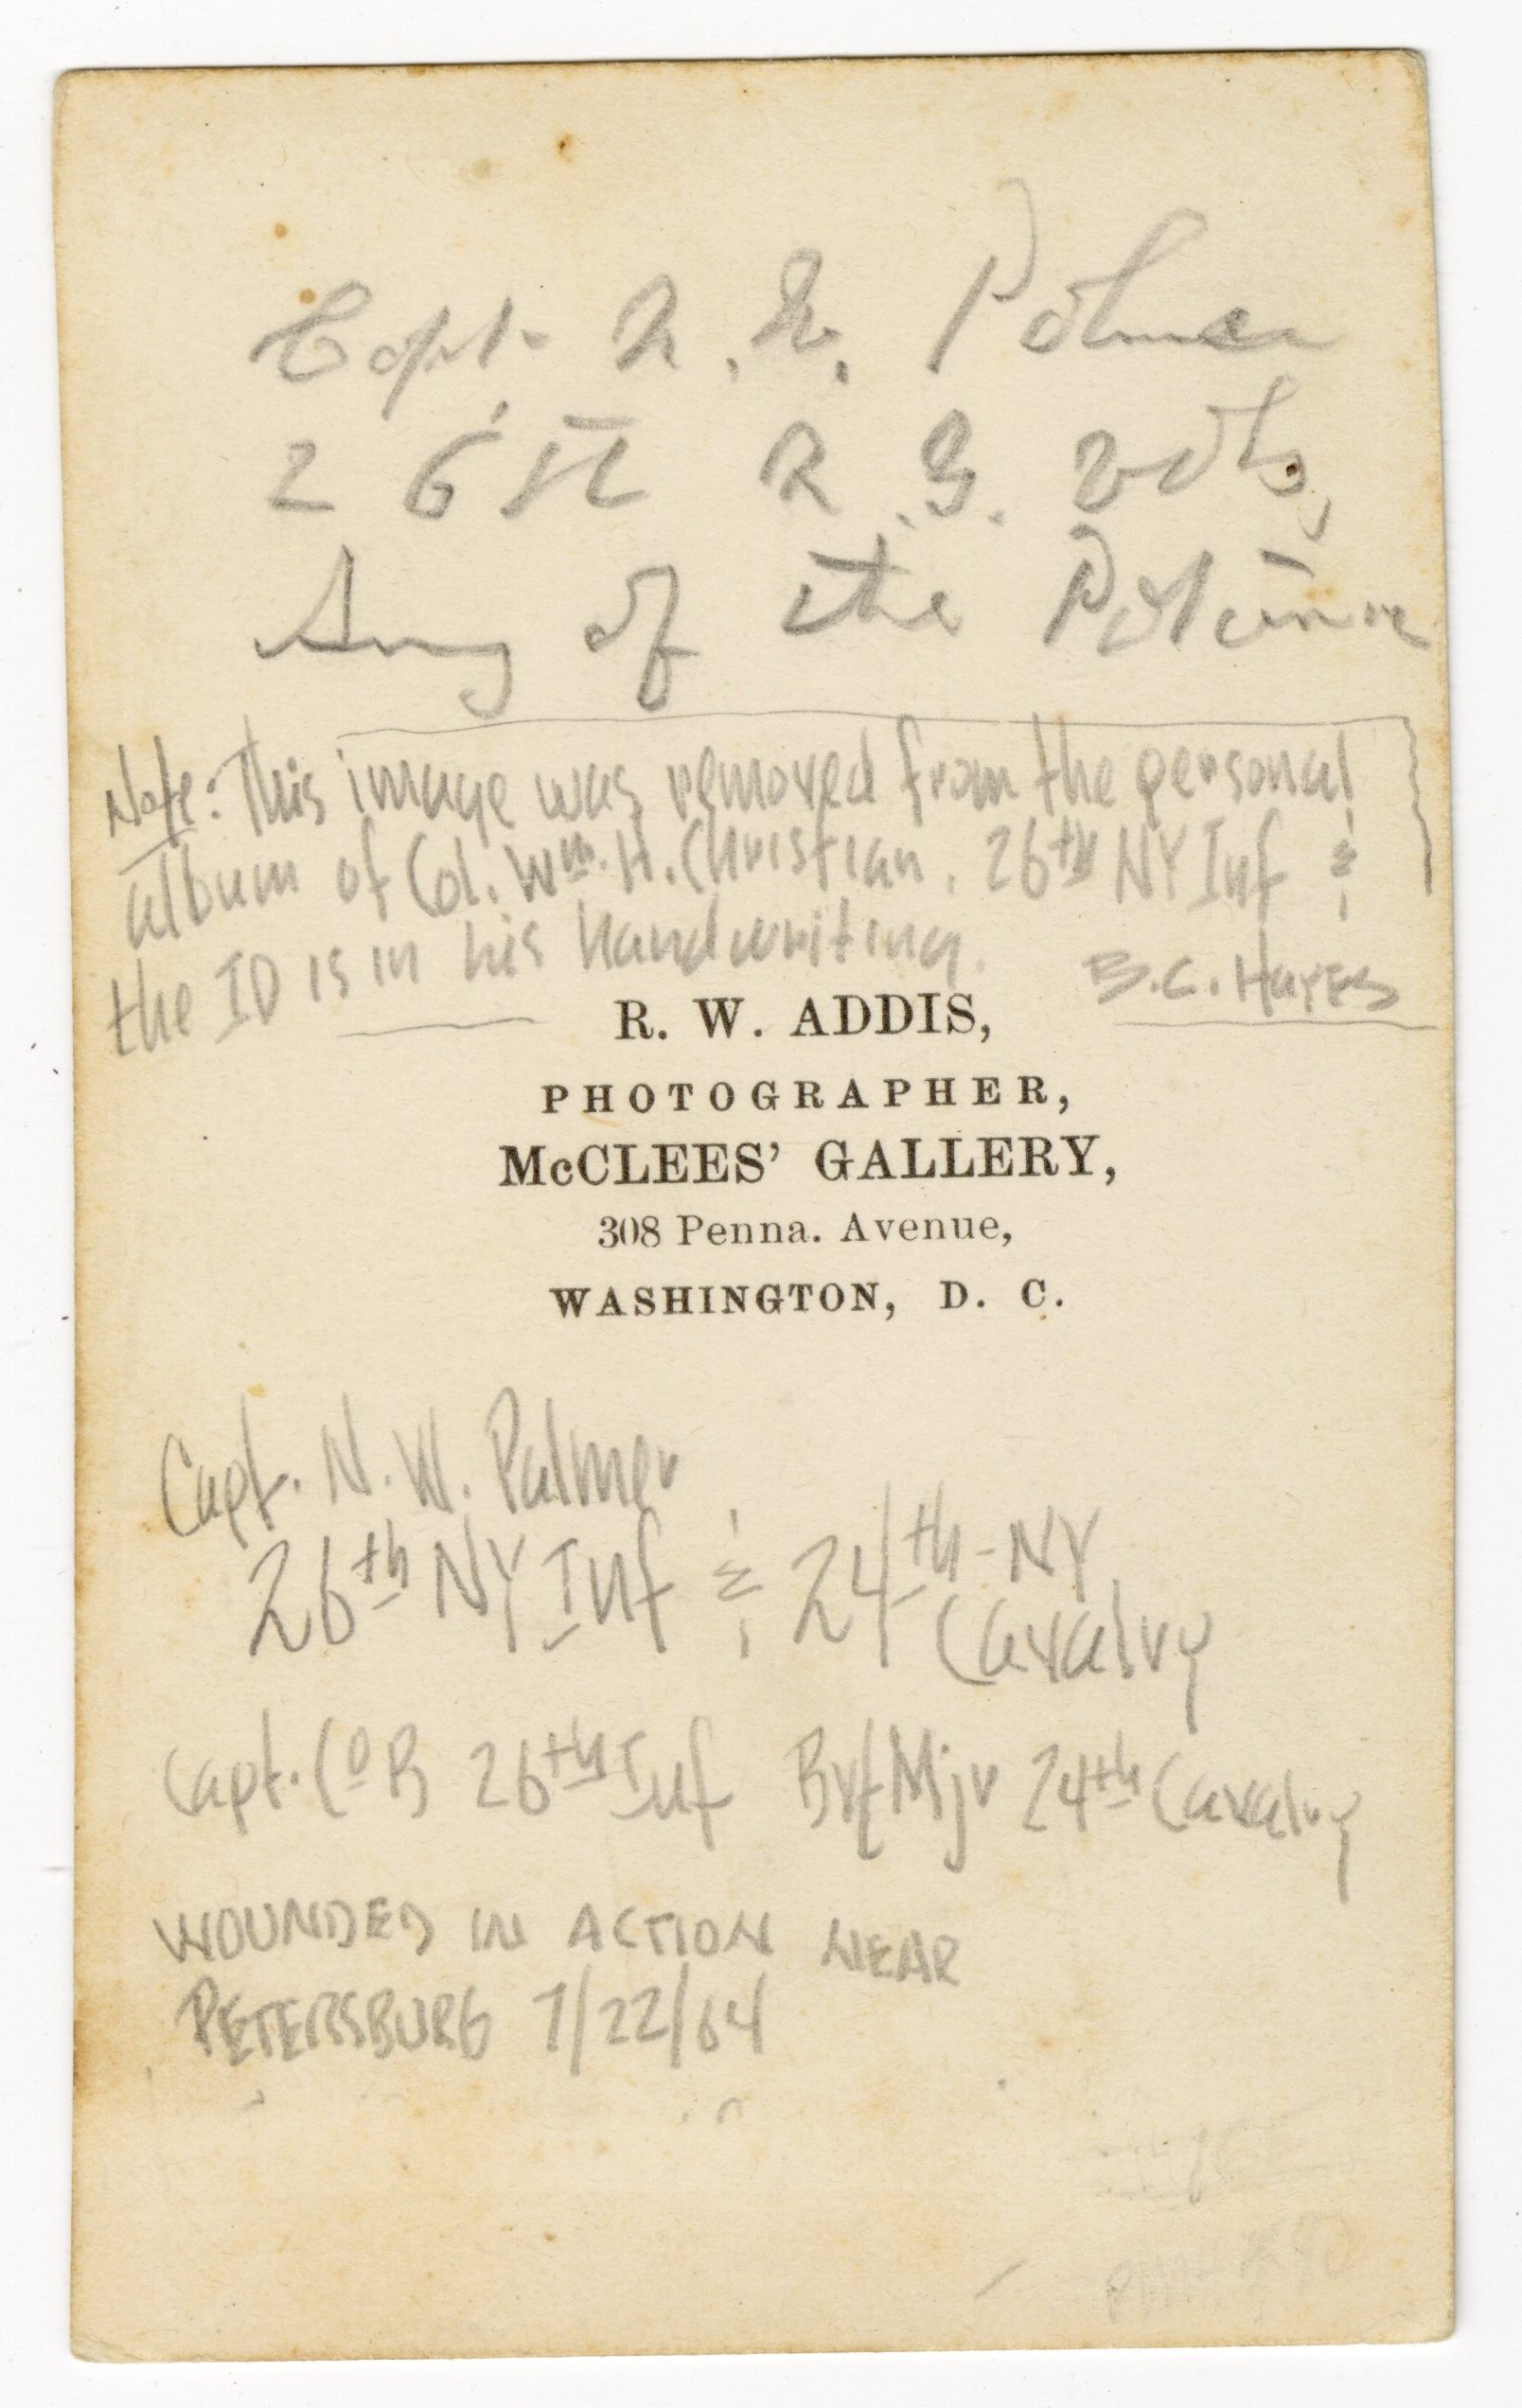 Capt. N. W. Palmer
26th N. Y. Vols,
Army of the Potomac
Note: This image was removed from the personal
album of Col. Wm. H. Christian, 26th NY Inf &
the ID is in his handwriting. B.C. HAYES
R. W. ADDIS,
PHOTOGRAPHER,
McCLEES' GALLERY,
308 Penna. Avenue,
WASHINGTON, D. C.
Capt. N. W. Palmer
26th NY Inf & 24th - NY
Cavalry
Capt. Co B 26th Inf Bvt Mjr 24th Cavalry
WOUNDED IN ACTION NEAR
PETERSBURG 7/22/64